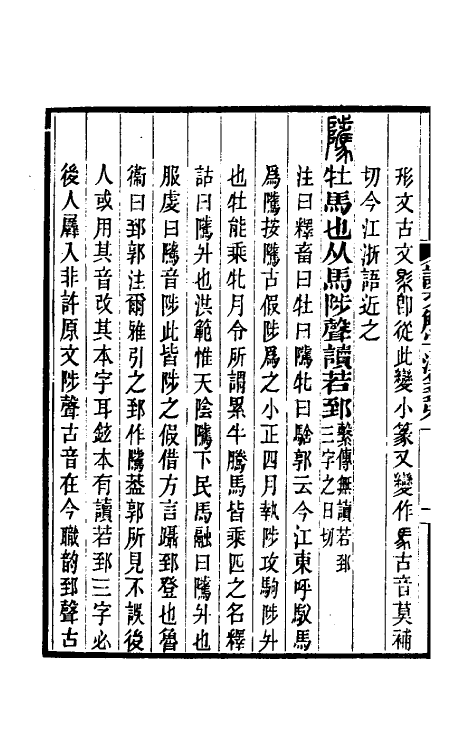 形文古文𢒠卽從此變小篆又變作馬古音莫補
切今江浙語近之
騭牡馬也从馬陟聲讀若郅繫傳無讀若郅三字之日切
注曰釋畜曰牡曰騭牝曰騇郭云今江東呼馭馬
爲騭按騭古假陟爲之小正四月執陟攻駒陟升
也牡能乘牝月令所謂累牛騰馬皆乘匹之名釋
詁曰騭升也洪範惟天陰騭下民馬融曰騭升也
服虔曰騭音陟此皆陟之假借方言躡郅登也魯
衞曰郅郭注爾雅引之郅作騭葢郭所見不誤後
人或用其音改其本字耳鉉本有讀若郅三字必
後人羼入非許原文陟聲古音在今職韵郅聲古